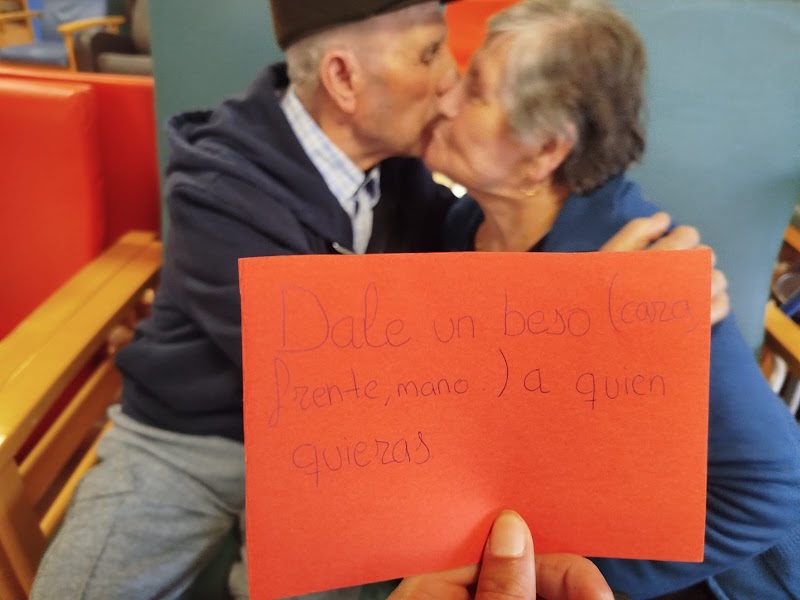 Dale un beso (cara,
frente, mano.) a quien
quieras